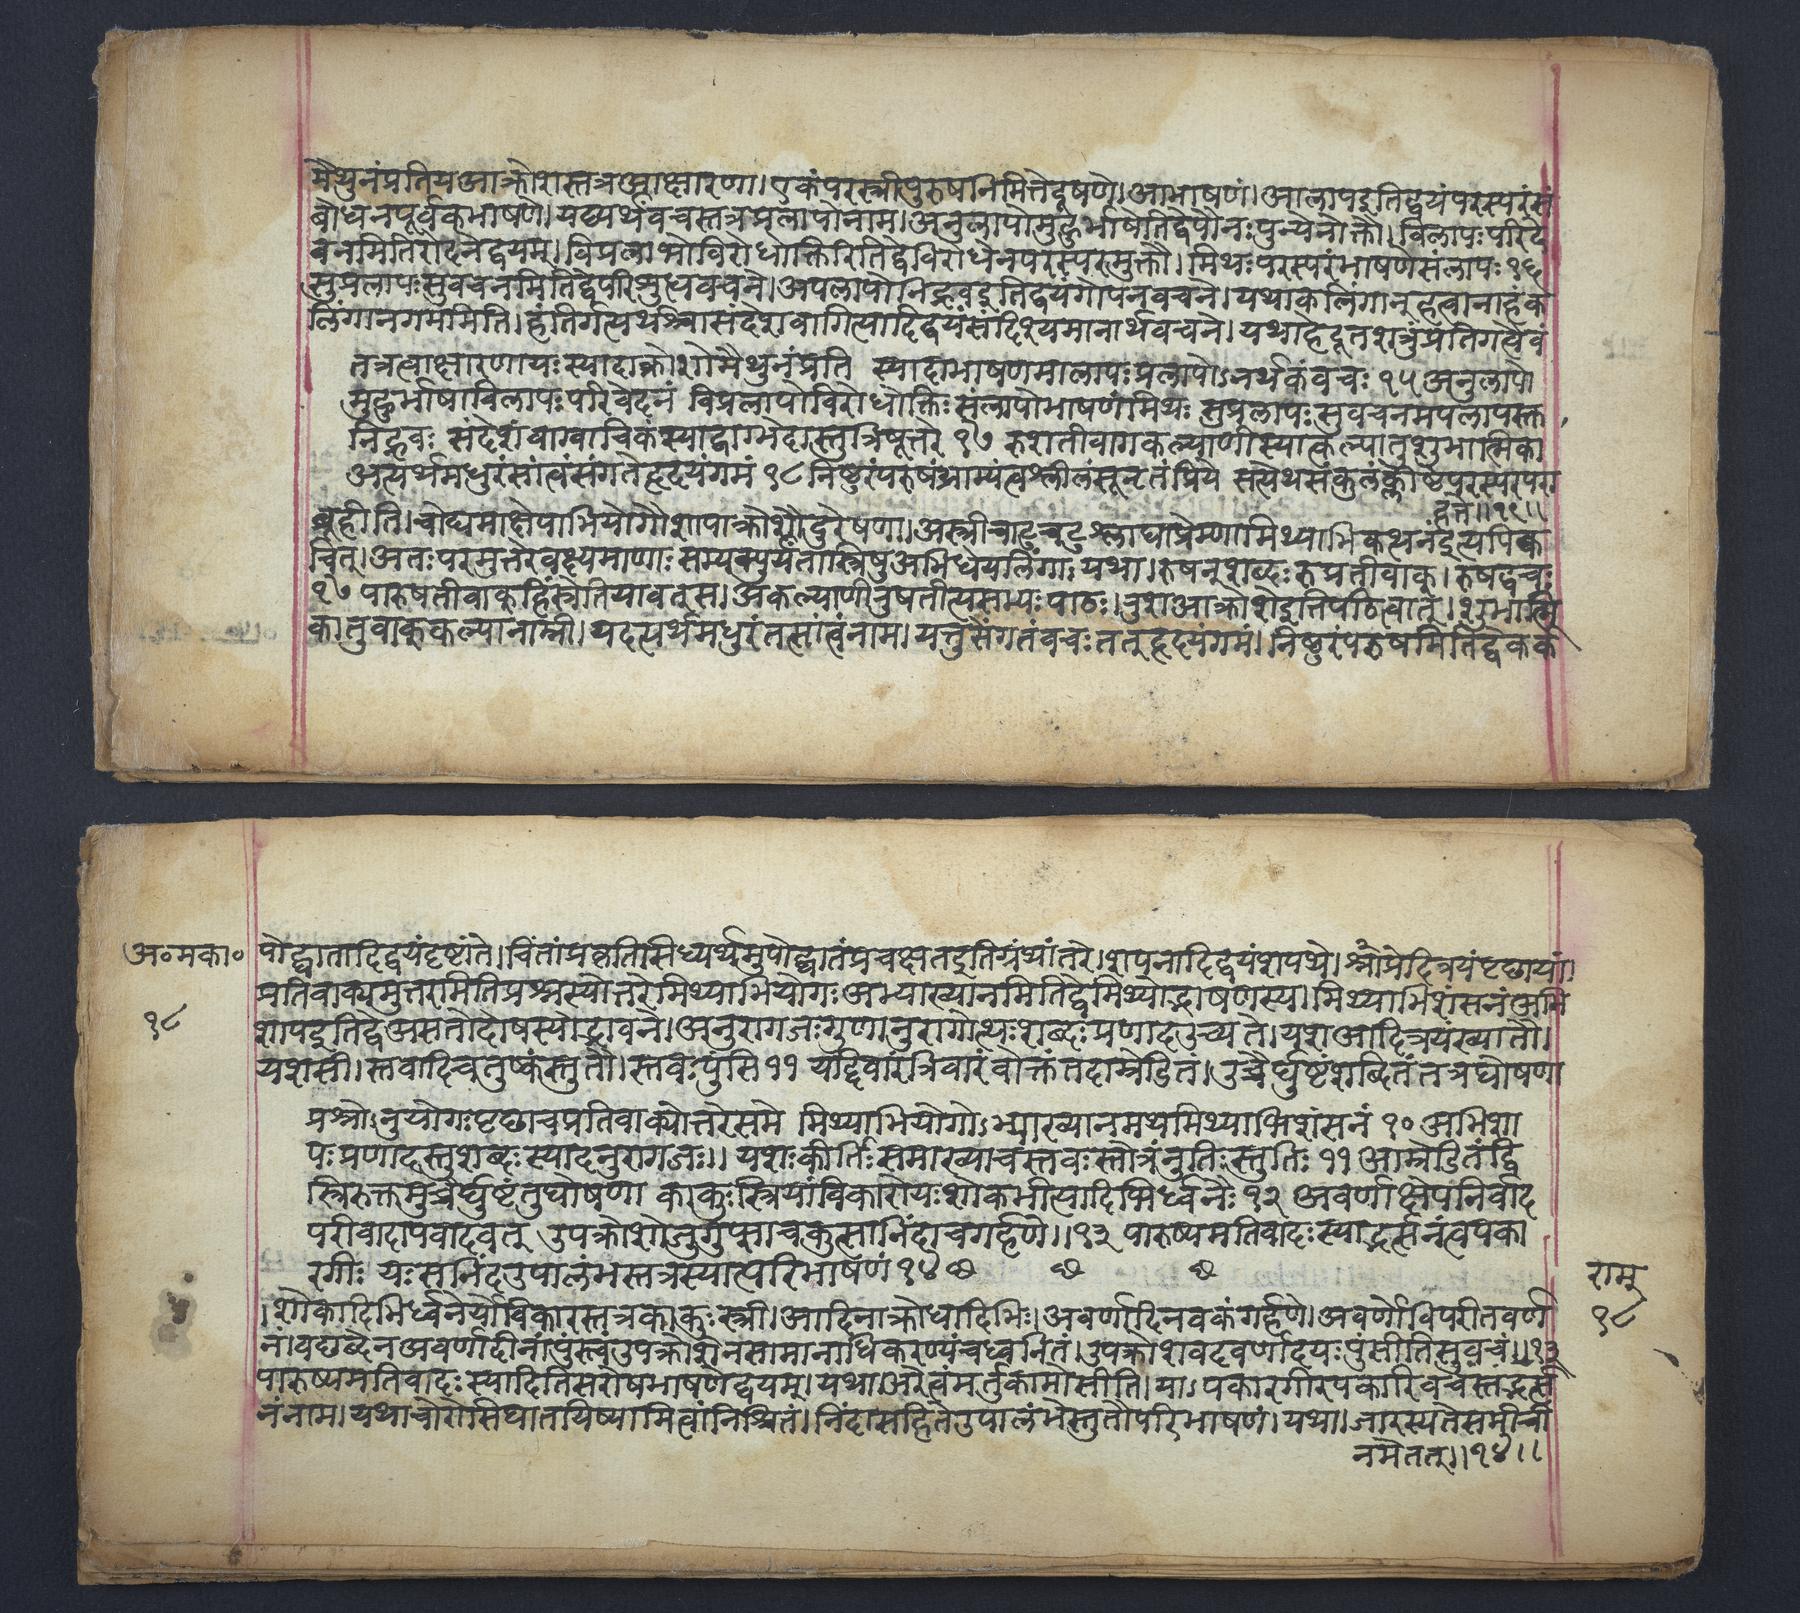 मैथुनंप्रतियआक्रोशस्तत्रआक्षारणा। एकंपरस्त्रीपुरुषनिमित्तेदूषणे। आभाषणं। आलापइतिद्वयंपरस्परंसं
बोधनपूर्वकभाषणे। यदव्यर्थंवचस्तत्रप्रलापोनाम। अनुलापोमुहुर्भाषेतिद्वेपौनःपुन्येनोक्तौ। विलापःपरिदे
वनमितिरोदनेद्वयम्। विप्रलापोविरोधोक्तिरितिद्वेविरोधेनपरस्परमुक्तौ। मिथःपरस्परंभाषणंसंलापः १६
सुप्रलापःसुवचनमितिद्वेपरिशुध्यवचने। अपलापोनिह्नवइतिद्वयंगोपनवचने। यथाकलिंगान्हत्वानाहंक
लिंगानगममिति। हतिर्गत्यर्थश्चासंदेशवागित्यादिद्वयंसंदिश्यमानार्थवचने। यथाहेदूतशत्रुंप्रतिगत्वैवं
तत्रत्वाक्षारणायःस्यादाक्रोशोमैथुनंप्रति स्यादाभाषणमालापःप्रलापोऽनर्थकंवचः १५ अनुलापो
मुहुर्भाषाविलापःपरिवेदनं विप्रलापोविरोधोक्तिःसंलापोभाषणंमिथः सुप्रलापःसुवचनमपलापस्तु
निह्नवः संदेशवाग्वाचिकंस्याद्वाग्भेदास्तुत्रिषूत्तरे १७ रुशतीवागकल्याणीस्यात्कल्यातुशुभात्मिका
अत्यर्थमधुरंसांत्वंसंगतंहृदयंगमं १८ निष्ठुरंपरुषंग्राम्यंत्वश्लीलंसूनृतंप्रिये सत्येथसंकुलक्लिष्टेपरस्परपरा
हते।।१९।।
ब्रूहीति। चोद्यमाक्षेपाभियोगौशापाक्रोशौदुरेषणा। अस्त्रीचाटुचटुश्लाघाप्रेम्णामिथ्याभिकत्थनंइत्यपिक्व
चित्। अतःपरमुत्तरेवक्ष्यमाणाःसम्यक्पर्यंतास्त्रिषुअभिधेयलिंगाः यथा। रुषन्शब्दःरुषतीवाक्। रुषद्वचः
१७ पारुषतीवाक्हिंस्रेतियावत्स। अकल्याणीउषतीत्यसभ्यःपाठः। नुशआक्रोशइतिपठित्वात्। शुभात्मि
कातुवाक्कल्यानाम्नी। यदत्यर्थमधुरंतत्सांत्वंनाम। यत्तुसंगतंवचःतत्हृदयंगमं। निष्ठुरंपरुषमितिद्वेकर्क
अ॰मका॰
१८
पोद्घातादिद्वयंदृष्टांते। चिंतांप्रकृतिसिध्यर्थमुपोद्घातंप्रचक्षतइतिग्रंथांतरे। शपनादिद्वयंशपथे। प्रश्नेतित्रयंपृच्छायां।
प्रतिवाक्यमुत्तरमितिप्रश्नस्योत्तरेमिथ्याभियोगःअभ्याख्यानमितिद्वेमिथ्याद्भाषणस्य। मिथ्याभिशंसनंअभि
शापइतिद्वेअसतोदोषस्योद्भावने। अनुरागजःगुणानुरागोत्थःशब्दःप्रणादउच्यते। यशआदित्रयंख्यातौ।
यशसी। स्तवादिचतुष्कंस्तुतौ। स्तवःपुंसि ११ यद्द्विवारंत्रिवारंवोक्तंतदाम्रेडितं। उच्चैर्घुष्टंशब्दितंतत्रघोषणा
प्रश्नोऽनुयोगःपृच्छाचप्रतिवाक्योत्तरेसमे मिथ्याभियोगोऽभ्याख्यानमथमिथ्याभिशंसनं १० अभिशा
पःप्रणादस्तुशब्दःस्यादनुरागजः।। यशःकीर्तिःसमाख्याचस्तवःस्तोत्रंनुतिःस्तुतिः ११ आम्रेडितंद्वि
स्त्रिरुक्तमुच्चैर्घुष्टंतुघोषणा काकुःस्त्रियांविकारोयःशोकभीत्यादिभिर्ध्वनेः १२ अवर्णाक्षेपनिर्वाद
परीवादापवादवत् उपक्रोशोजुगुप्साचकुत्सानिंदाचगर्हणे।।१३ पारुष्यमतिवादःस्याद्भर्त्सनंत्वपका
रगीः यःसनिंदउपालंभस्तत्रस्यात्परिभाषणं १४
। शोकादिभिर्ध्वनेर्योविकारस्तत्रकाकुःस्त्री। आदिनाक्रोधादिभिः। अवर्णादिनवकंगर्हणे। अवर्णोविपरीतवर्ण
नं। वद्यब्देनअवर्णादीनांपुंस्त्वंउपक्रोशेनसामानाधिकरण्यंचध्वनितं। उपक्रोशवदवर्णादयःपुंसीतिसुवचं।।१३
पारुष्यमतिवादःस्यादितिसरोषभाषणेद्वयम्। यथाअरेत्वंमर्तुकामोसीति। याऽपकारगीरपकारिवचस्तद्भर्त्स
नंनाम। यथाचोरोसिघातयिष्यामित्वांनिश्चितं। निंदासहितेउपालंभेस्तुतौपरिभाषणं। यथा। जारस्यतेसमीची
नमेतत्।।१४।।
राम्
१८